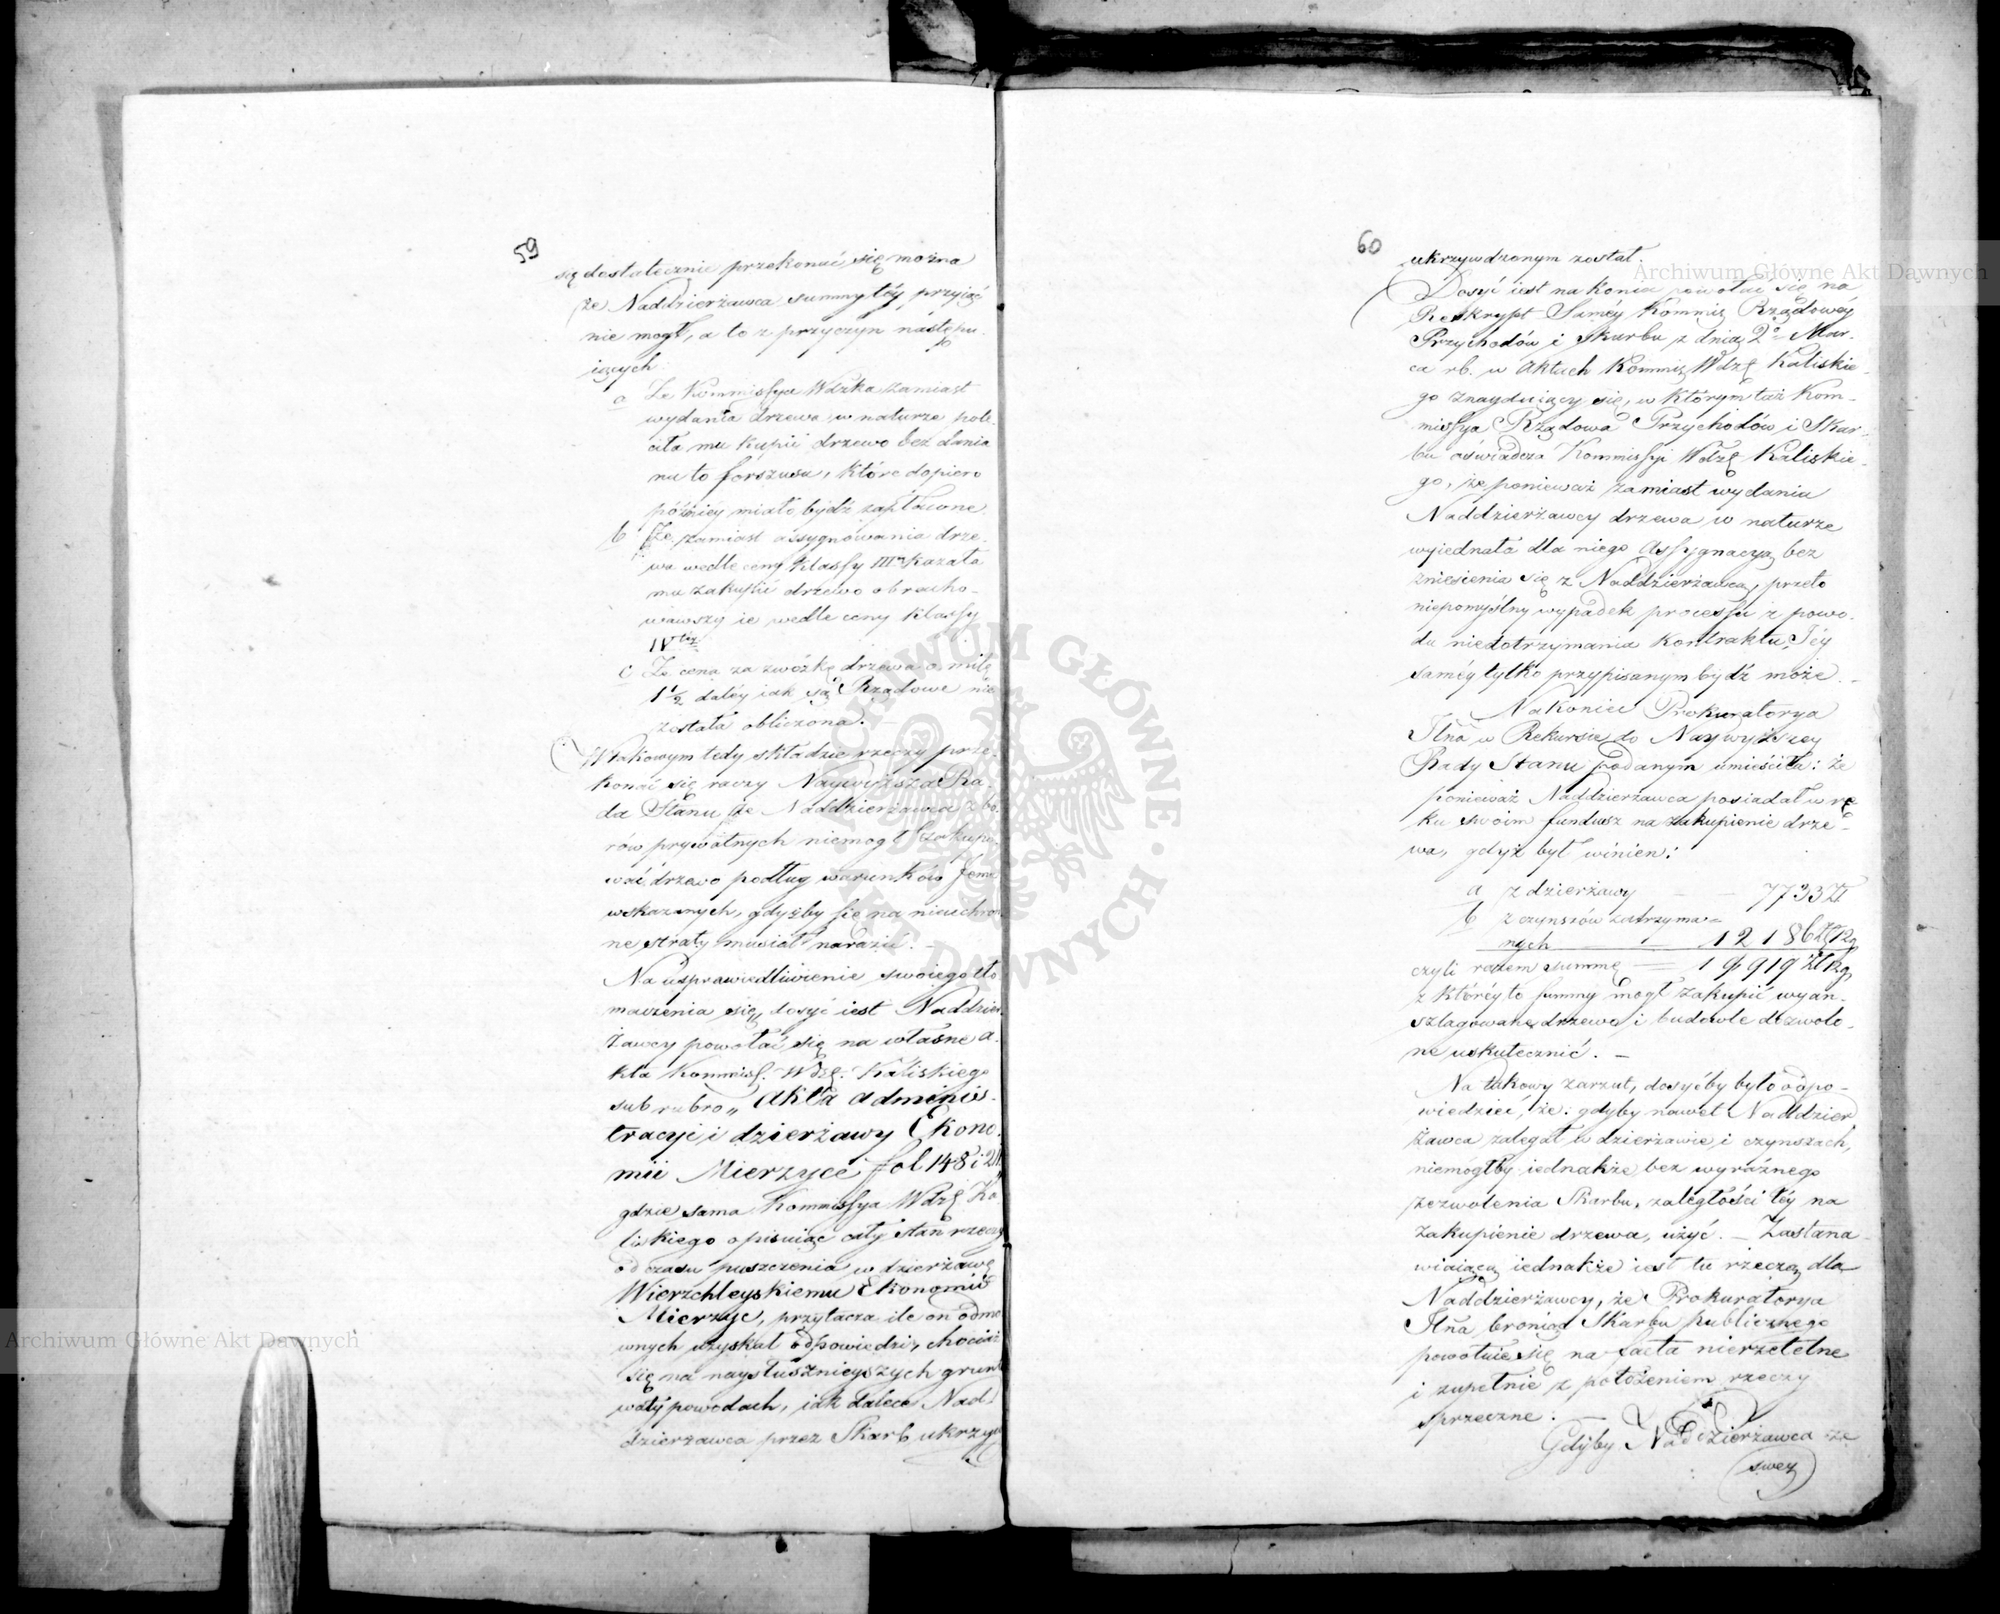 59
się dostatecznie przekonać się można
że Naddzierżawca summy téy, przyiąć
nie mogł, a to z przyczyn następu-
iących:
a Że Kommissya Wdzka zamiast
wydania drzewa w naturze pole-
ciła mu kupić drzewo bez dania
na to forszusu, które dopiero
późniey miało bydź zapłacone
b Że zamiast assygnowania drze-
wa wedle ceny klassy III kazała
mu zakupić drzewo obracho-
wawszy ie wedle ceny klassy
IV téy
c Że cena za zwózkę drzewa o milę
1 1/2 daléy iak są Rządowe nie
została obliczona. –
W takowym tedy składzie rzeczy prze-
konać się raczy Naywyższa Ra-
da Stanu że Naddzierżawca z bo-
rów prywatnych niemogł zakupo-
wać drzewo podług warunków Jemu
wskazanych, gdyżby się na nieuchron
ne straty musiał narazić. –
Na usprawiedliwienie swoiego tło
maczenia się, dosyć iest Naddzier
żawcy powołać się na własne a-
kta Kommiss. Wdz. Kaliskiego
sub rubro „ Akta adminis-
tracyi i dzierżawy Ekono-
mii Mierzyce fol 148 i 211
gdzie sama Kommissya Wdz Ka
liskiego opisuiąc cały stan rzeczy
od czasu puszczenia w dzierżawę
Wierzchleyskiemu Ekonomii
Mierzyc, przytacza ile on odmo
wnych uzyskał odpowiedzi, chociaż
się na naysłusznieyszych grunt
wały powodach, iak dalece Nad-
dzierżawca przez Skarb ukrzyw
60
ukrzywdzonym został.
Dosyć iest na koniec powołać się na
Reskrypt Saméy Kommis Rządowéy
Przychodów i Skarbu z dnia 2º Mar-
ca rb. w Aktach Kommis Wdz Kaliskie-
go znayduiący się, w którym taż Kom-
missya Rządowa Przychodów i Skar-
bu oświadcza Kommissyi Wdz Kaliskie-
go, że ponieważ zamiast wydania
Naddzierżawcy drzewa w naturze
wyiednała dla niego Assygnacyą bez
zniesienia się z Naddzierżawcą, przeto
niepomyślny wypadek processu z powo-
du niedotrzymania Kontraktu Jéy
saméy tylko przypisanym bydź może. –
Nakoniec Prokuratorya
Jlna w Rekursie do Naywyższey
Rady Stanu podanym umieściła: że
ponieważ Naddzierżawca posiadał w rę
ku swoim fundusz na zakupienie drze-
wa, gdyż był winien:
a z dzierżawy – – 7733 Zł
b z czynszów zatrzyma-
nych – – 12186 Zł 12 g
czyli razem summę – 19919 Zł 12 g
z któréy to summy mogł zakupić wyan-
szlagowane drzewo i budowle dozwolo-
ne uskutecznić. –
Na takowy zarzut, dosyćby było odpo-
wiedzieć, że: gdyby nawet Naddzier
żawca zalegał w dzierżawie i czynszach,
niemógłby iednakże bez wyraźnego
zezwolenia Skarbu, zaległości téy na
zakupienie drzewa, użyć. – Zastana-
wiaiącą iednakże iest tu rzeczą dla
Naddzierżawcy, że Prokuratorya
Jlna broniąc Skarbu publicznego
powołuie się na facta nierzetelne
i zupełnie z położeniem rzeczy
sprzeczne: –
Gdyby Naddzierżawca ze
swey
Archiwum Główne Akt Dawnych
Archiwum Główne Akt Dawnych
ARCHIWUM GŁÓWNE AKT DAWNYCH